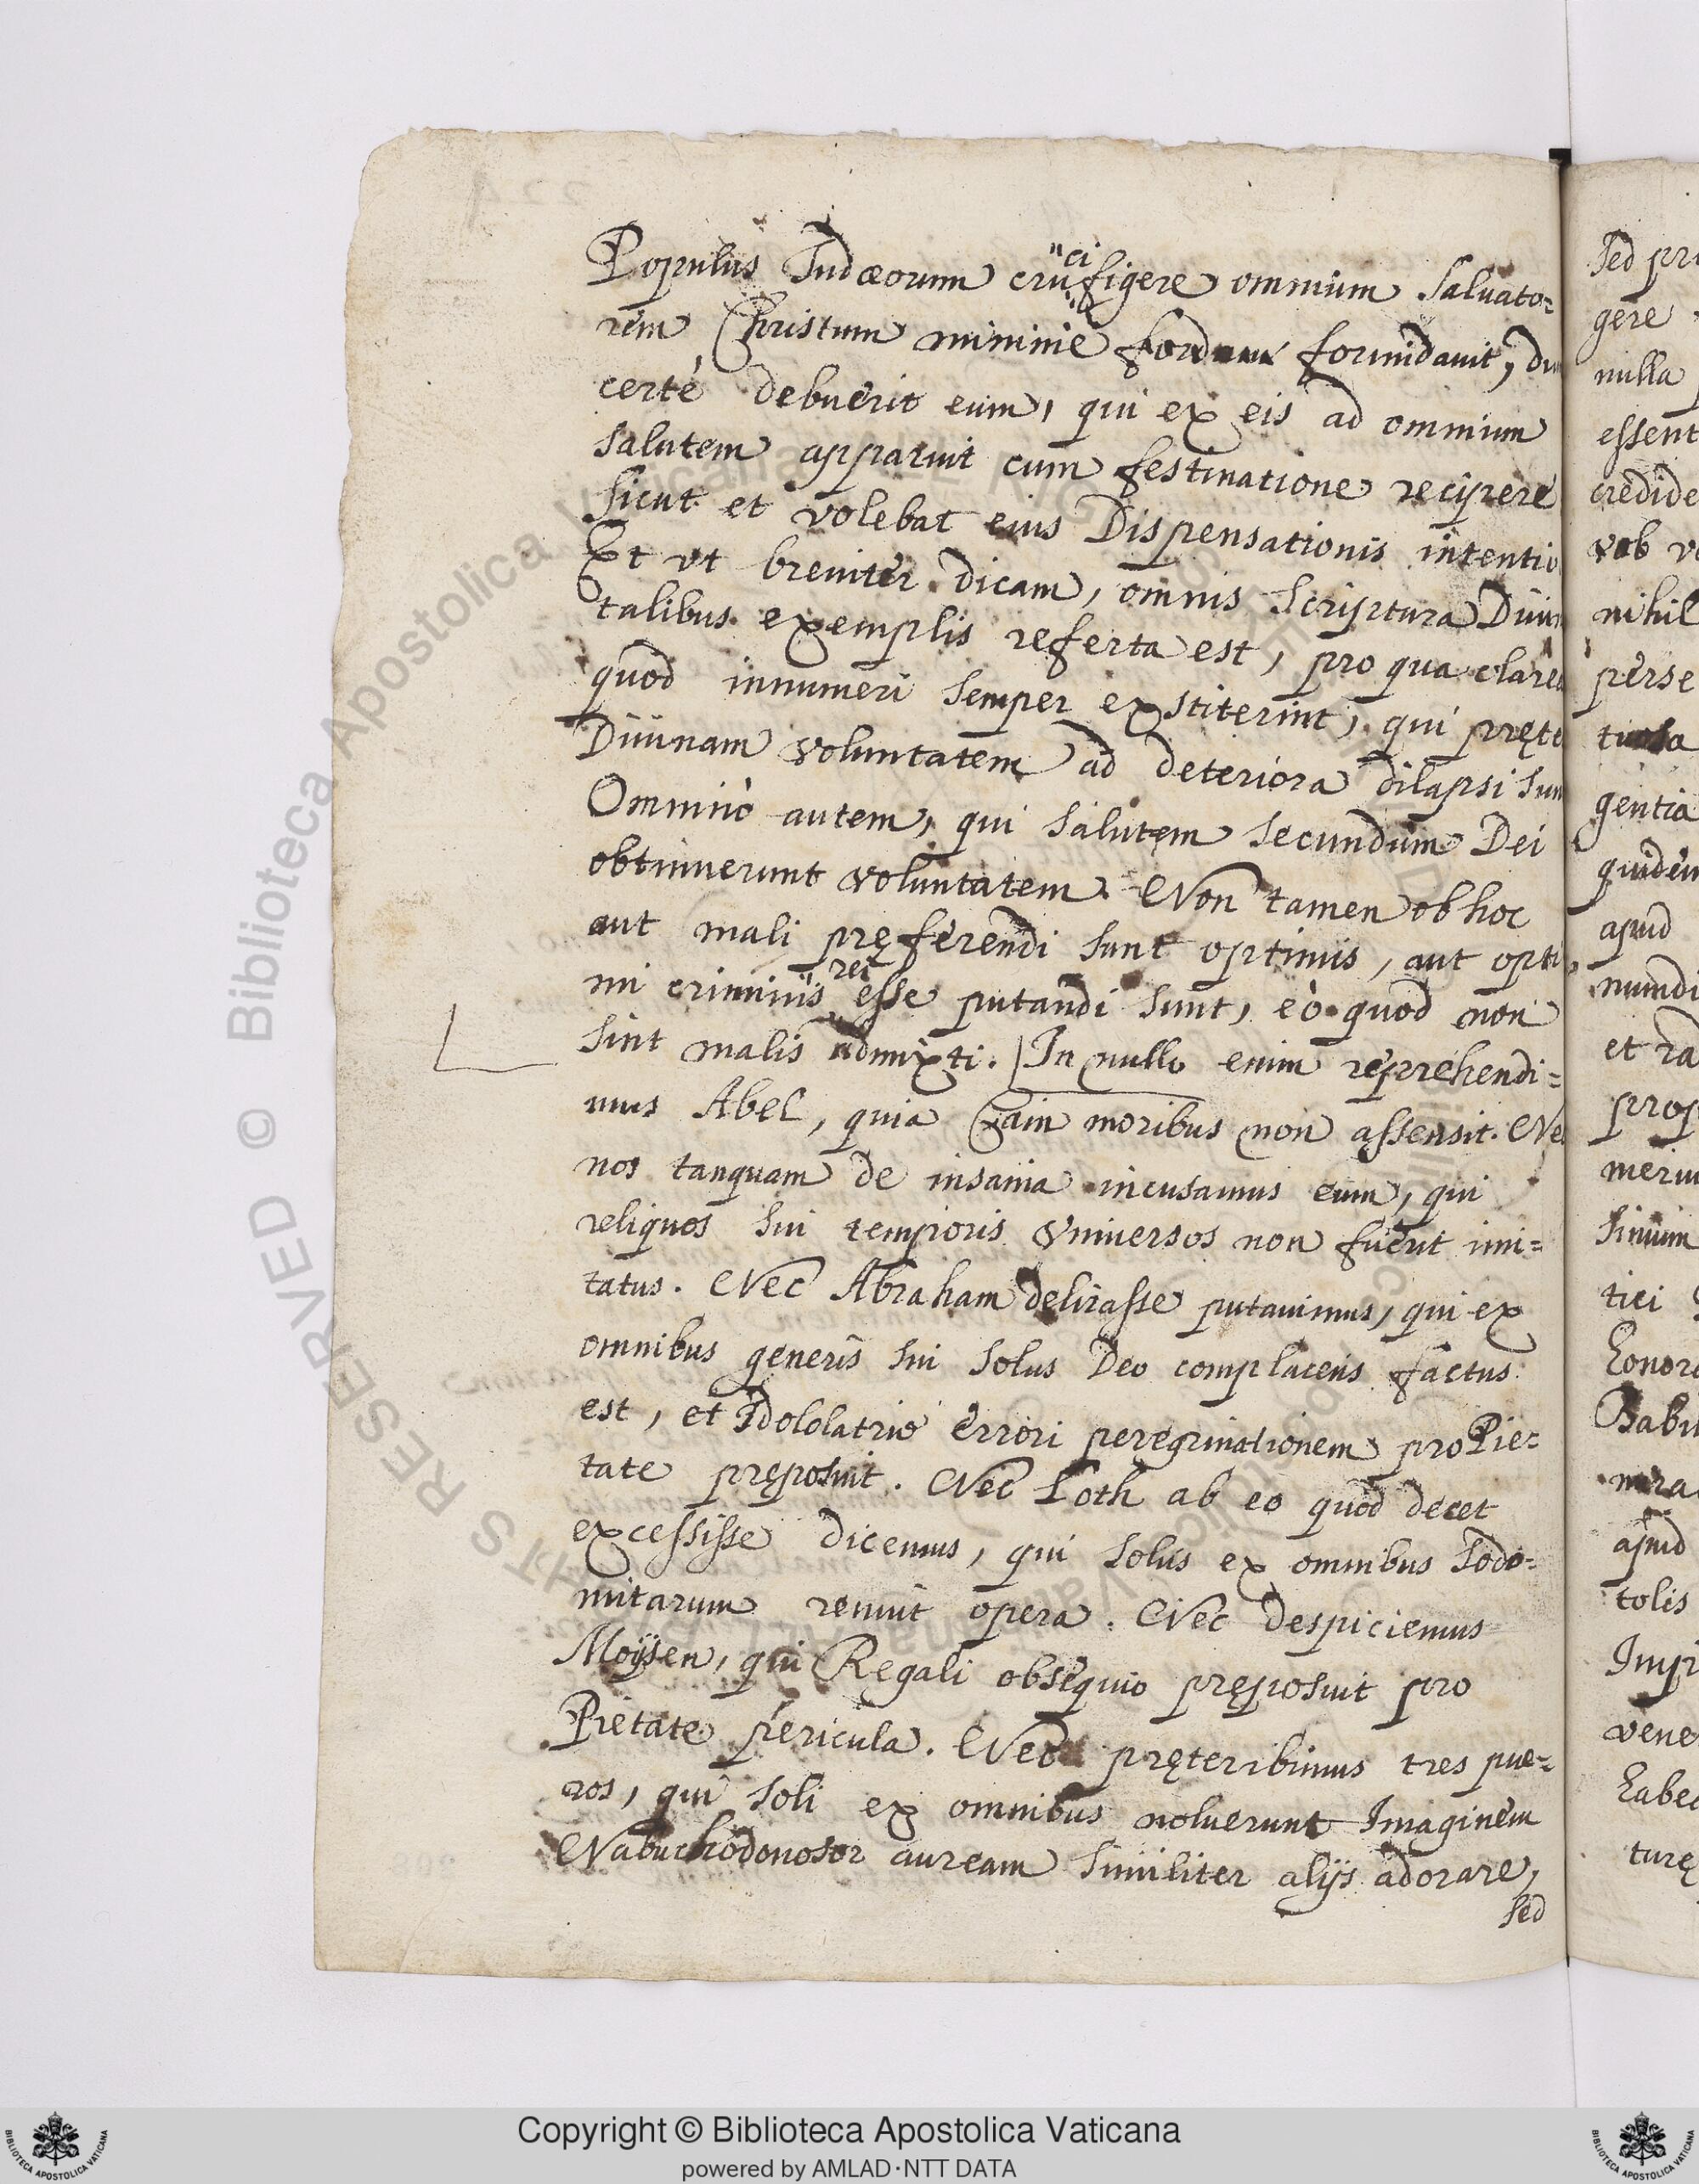 Populus Judæorum cru ci figere omnium Saluato=
rem Christum minimè formidauit, du
certè debuerit eum, qui ex eis ad omnium
salutem apparuit cum festinatione recipere
sicut et volebat eius Dispensationis intentio
Et vt breuiter dicam, omnis Scriptura Diuin
talibus exemplis referta est, pro qua clarea
quod innumeri semper exstiterint, qui pręte
Diuinam voluntatem ad deteriora dilapsi sun
Omninò autem, qui salutem secundùm Dei
obtinuerunt voluntatem. Non tamen ob hoc
aut mali pręferendi sunt optimis, aut opti
mi criminis rei esse putandi sunt, eò quod non
sint malis admixti. In nullo enim reprehendi=
mus Abel, quia Cain moribus non assensit. Ne
nos tanquam de insania incusamus eum, qui
reliquos sui temporis vniuersos non fuerit imi=
tatus. Nec Abraham delirasse putauimus, qui ex
omnibus generis sui solus Deo complacens factus
est, et Idololatrię errori peregrinationem pro Pie=
tate pręposuit. Nec Loth ab eo quod decet
excessisse dicemus, qui solus ex omnibus Sodo=
mitarum renuit opera. Nec despiciemus
Moÿsen, qui Regali obsequio pręposuit pro
Pietate pericula. Nec pręteribimus tres pue=
ros, qui soli ex omnibus noluerunt Imaginem
Nabuchodonosor auream similiter alijs adorare,
sed
Sed pri
gere
nulla
essent
credide
vob
nihil
perse
gentia
quidem
apud
mundi
et ra
prop
meriu
simum
tici
honor
Babu
mra
apud
tolis
Impi
vene
habe
turę
RIGHTS RESERVED © Biblioteca Apostolica Vaticana
Copyright © Biblioteca Apostolica Vaticana
powered by AMLAD·NTT DATA
BIBLIOTECA APOSTOLICA VATICANA
BIBLIOTECA APOSTOLICA VATICANA